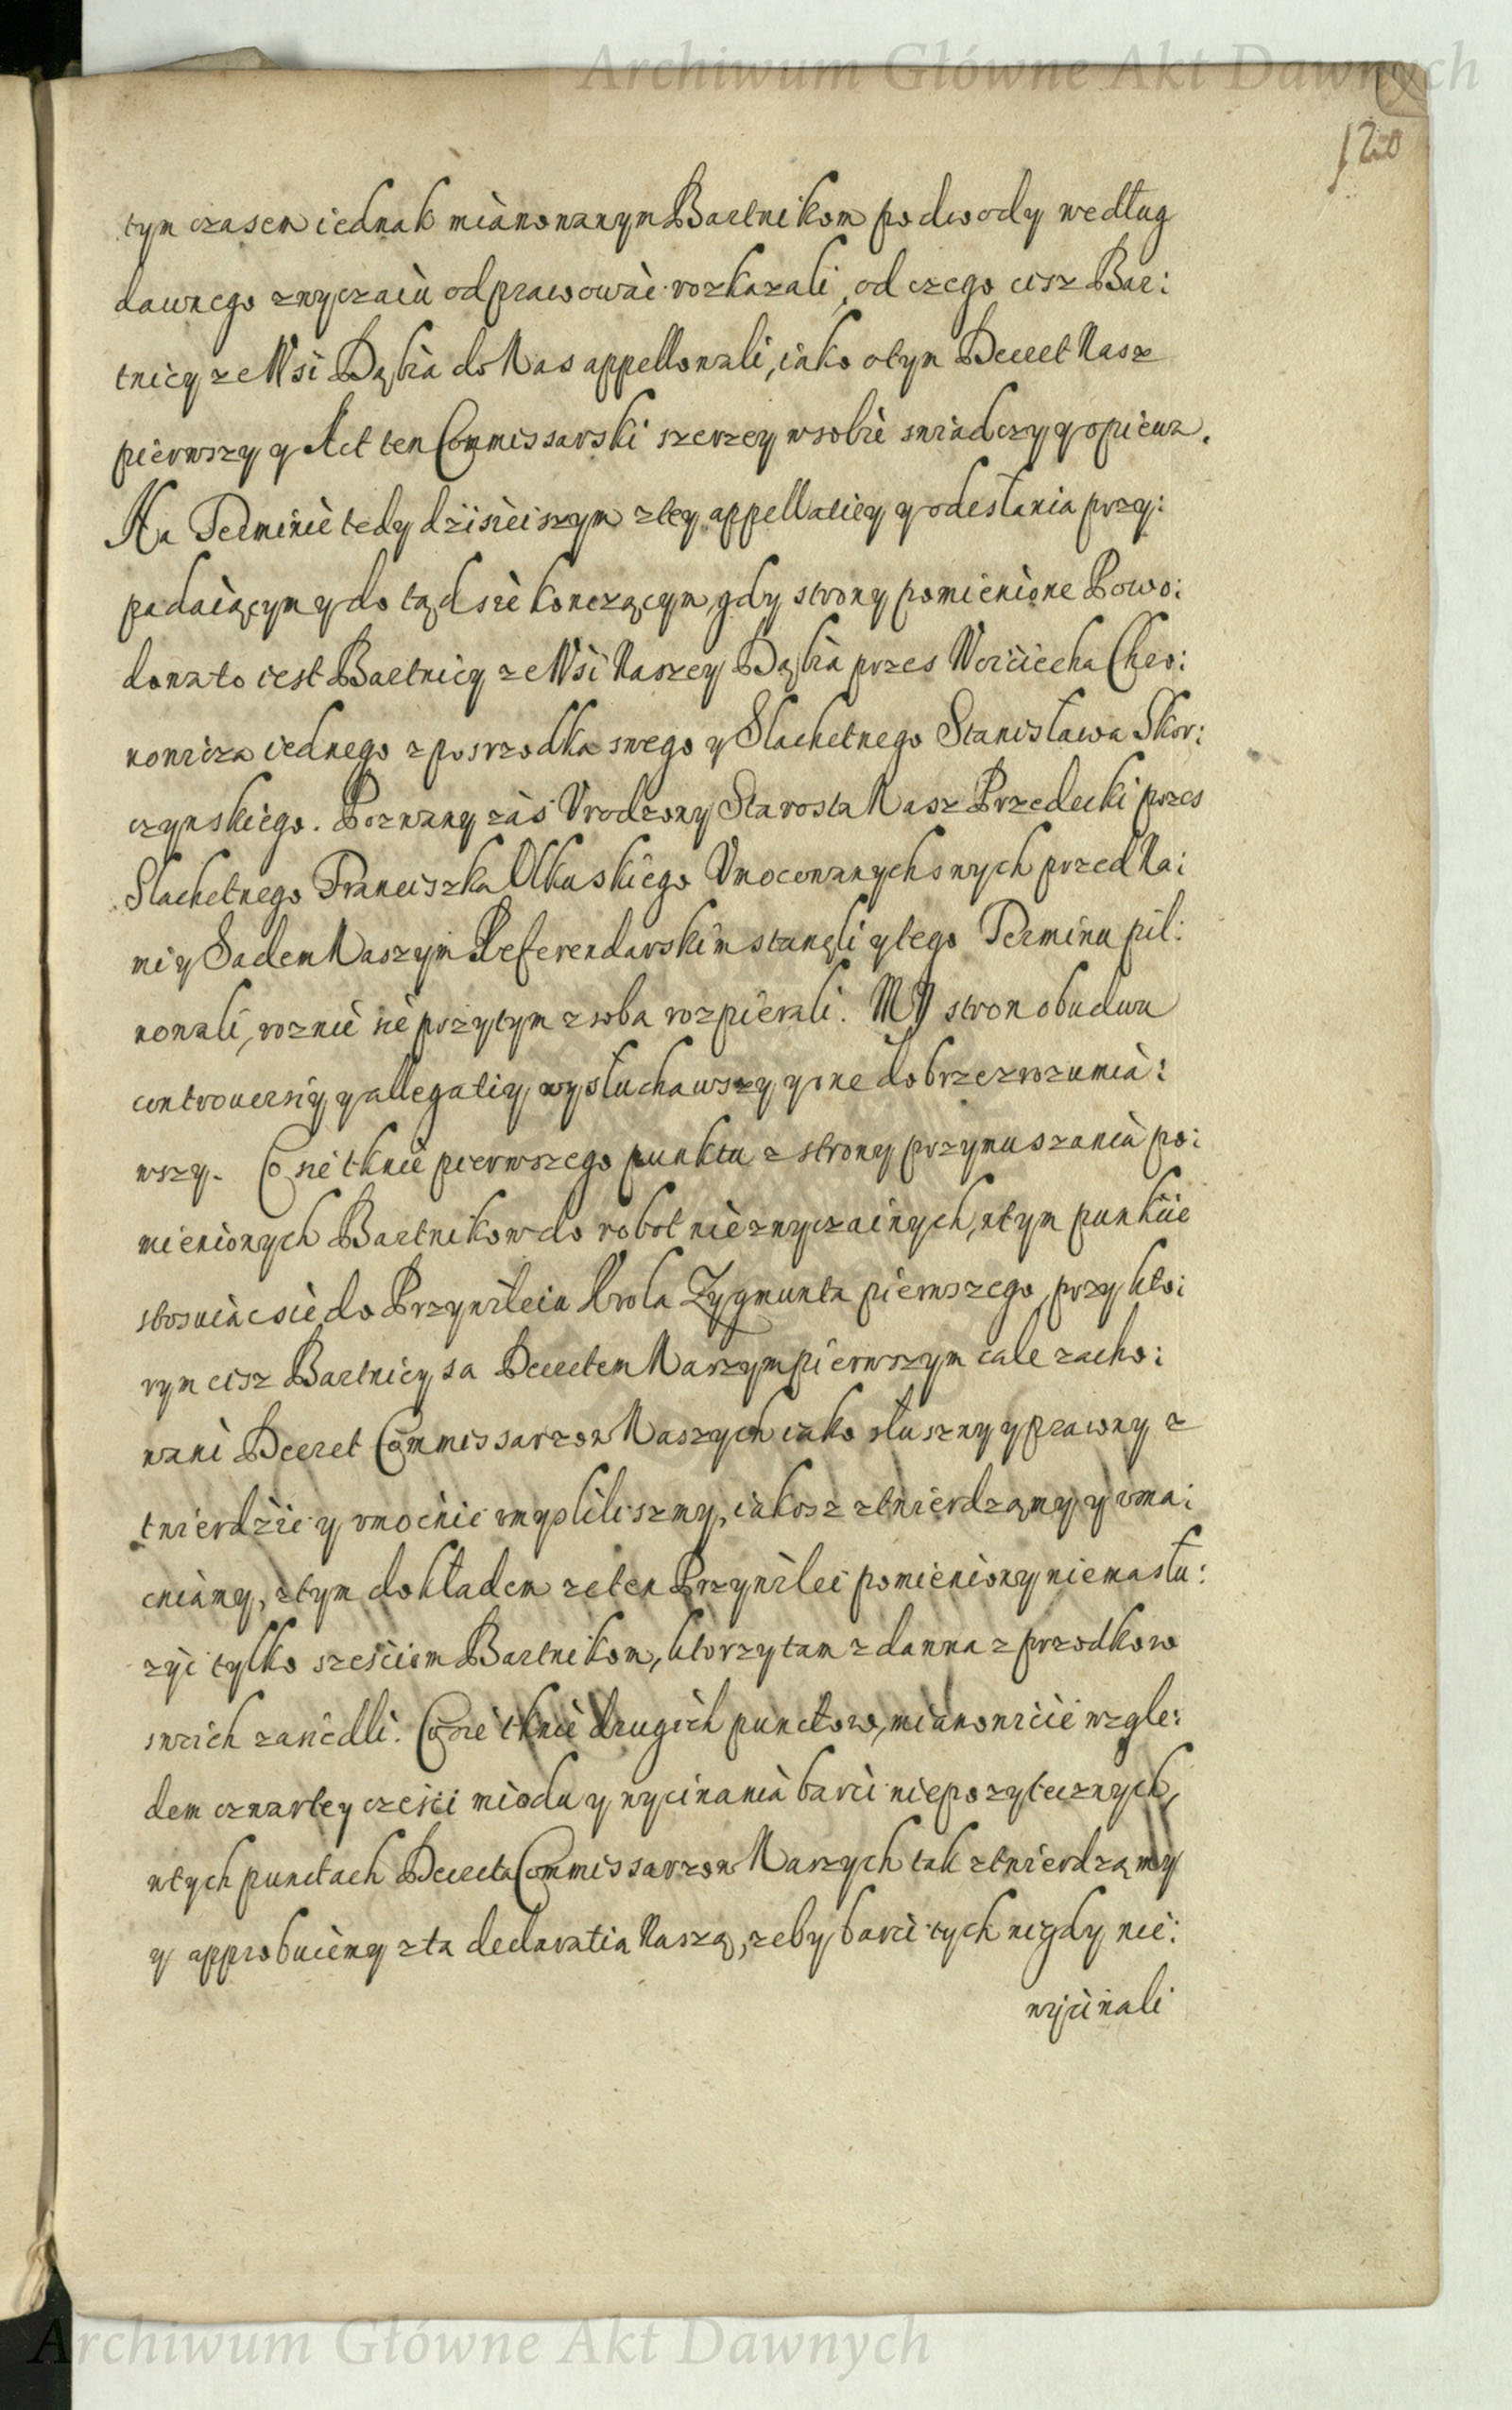 Archiwum Główne Akt Dawnych
120
tym czasem iednak mianowanym Bartnikom podwody według
dawnego zwyczaiu odprawować rozkazali, od czego cisz Bar:
tnicy ze Wsi Dąbia do Nas appellowali, iako o tym Decret Nasz
pierwszy y Act ten Commissarski szerzey w sobie swiadczy y opiewa.
Na Terminie tedy dzisieiszym z tey appellatiey y odesłania przy:
padaiącym y do tąd sie konczącym, gdy strony pomienione Powo:
dowa to iest Bartnicy ze Wsi Naszey Dąbia przes Woiciecha Chro:
nowicza iednego z posrzodka swego y Slachetnego Stanisława Skor:
czynskiego. Pozwany zaś Vrodzony Starosta Nasz Przedecki przes
Slachetnego Franciszka Olkuskiego Vmocowanych swych przed Na:
mi y Sadem Naszym Referendarskim stanęli y tego Terminu pil:
nowali, roznie sie przytym z soba rozpierali. MY stron obudwu
controuersiy y allegatiy wysłuchawszy y one dobrze zrozumia:
wszy. Co sie tknie pierwszego punktu z strony przymuszania po:
mienionych Bartnikow do robot niezwyczainych, w tym punkcie
stosuiąc sie do Przywileiu Krola Zygmunta pierwszego, przy kto:
rym cisz Bartnicy sa Decretem Naszym pierwszym cale zacho:
wani Decret Commissarzow Naszych iako słuszny y prawny z
twierdzić y vmocnić vmysliliszmy, iakosz ztwierdzamy y vma:
cniamy, z tym dokładem ze ten Przywilei pomieniony nie ma słu:
zyć tylko sześciom Bartnikom, ktorzy tam z dawna z przodkow
swoich zasiedli. Co sie tknie drugich punctow, mianowicie wzgle:
dem czwartey części miodu y wycinania barci niepozytecznych,
w tych punctach Decreta Commissarzow Naszych tak ztwierdzamy
y approbuiemy z ta declaratia Naszą, zeby barci tych nigdy nie:
wycinali
Archiwum Główne Akt Dawnych